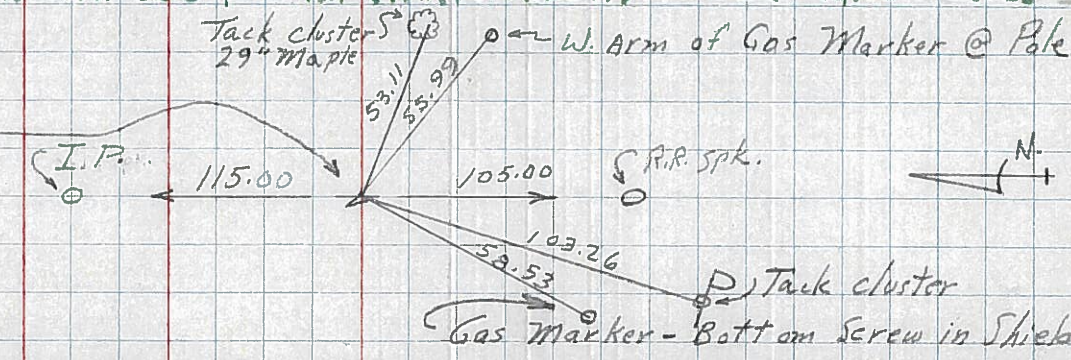 Tack cluster
29" Maple
W. Arm of Gas Marker @ Pole
53.11
55.99
I.P.
115.00
105.00
R.R. Spk.
N.
103.26
58.53
P
Tack cluster
Gas Marker - Bottom Screw in Shield